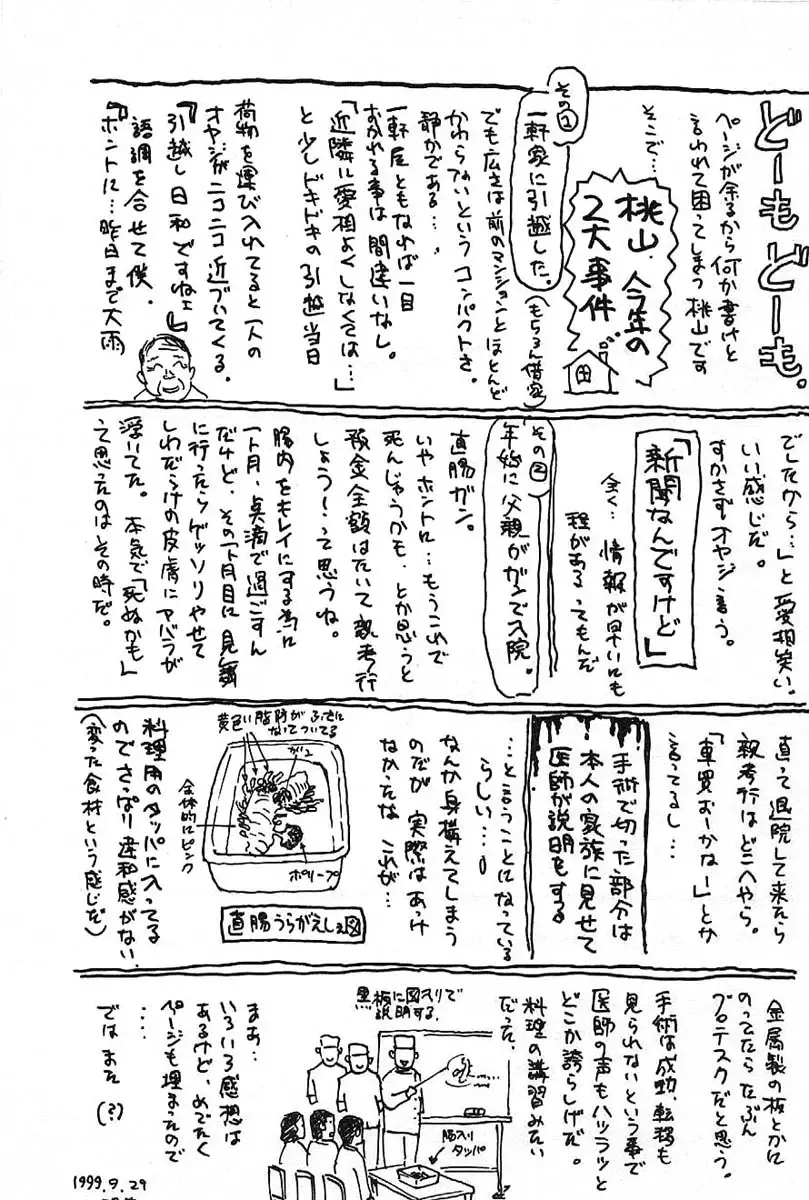 どーもどーも。
ページが余るから何か書けと
言われて困ってしまう桃山です
そこで…
桃山、今年の
2大事件
その1
一軒家に引越した。
(もちろん借家)
でも広さは前のマンションとほとんど
かわらないというコンパクトさ。
静かである…。
一軒屋ともなれば一目
おかれる事は間違いなし。
「近隣に愛想よくしなくては…」
と少しドキドキの引越当日
荷物を運び入れてると一人の
オヤジがニコニコ近づいてくる。
『引越し日和ですねェ』
語調を合せて僕、
『ホントに…昨日まで大雨
でしたから…」と愛想笑い。
いい感じだ。
すかさずオヤジ言う。
「新聞なんですけど」
全く…情報が早いにも
程があるってもんだ
その2
年始に父親がガンで入院。
直腸ガン。
いやホントに…もうこれで
死んじゃうかも、とか思うと
預金全額はたいて親孝行
しょう!って思うね。
腸内をキレイにする為に
一ヶ月、点滴で過ごすん
だけど、その1ヶ月目に見舞
に行ったらゲッソリやせて
しわだらけの皮膚にアバラが
浮いてた。本気で「死ぬかも」
って思ったのはその時だ。
直って退院して来たら
親孝行はどこへやら。
「車買おーかなー」とか
言ってるし…
手術で切った部分は
本人の家族に見せて
医師が説明をする
…と言うことになっている
らしい…。
なんか身構えてしまう
のだが実際はあっけ
なかったな これが…
黄色い脂肪がふさふさに
なってついてる
ガン
全体的にピンク
ポリープ
直腸うらがえしェ図
料理用のタッパに入ってる
のでさっぱり違和感がない
(変った食材という感じだ)
金属製の板とかに
のってたらたぶん
グロテスクだと思う。
手術は成功、転移も
見られないという事で
医師の声もハツラツと
どこか誇らしげだ。
料理の講習みたい
だった。
黒板に図入りで
説明する。
腸入り
タッパ
まあ…
いろいろ感想は
あるけど、めでたく
ページも埋まったので
…。
ではまた(?)
1999.9.29